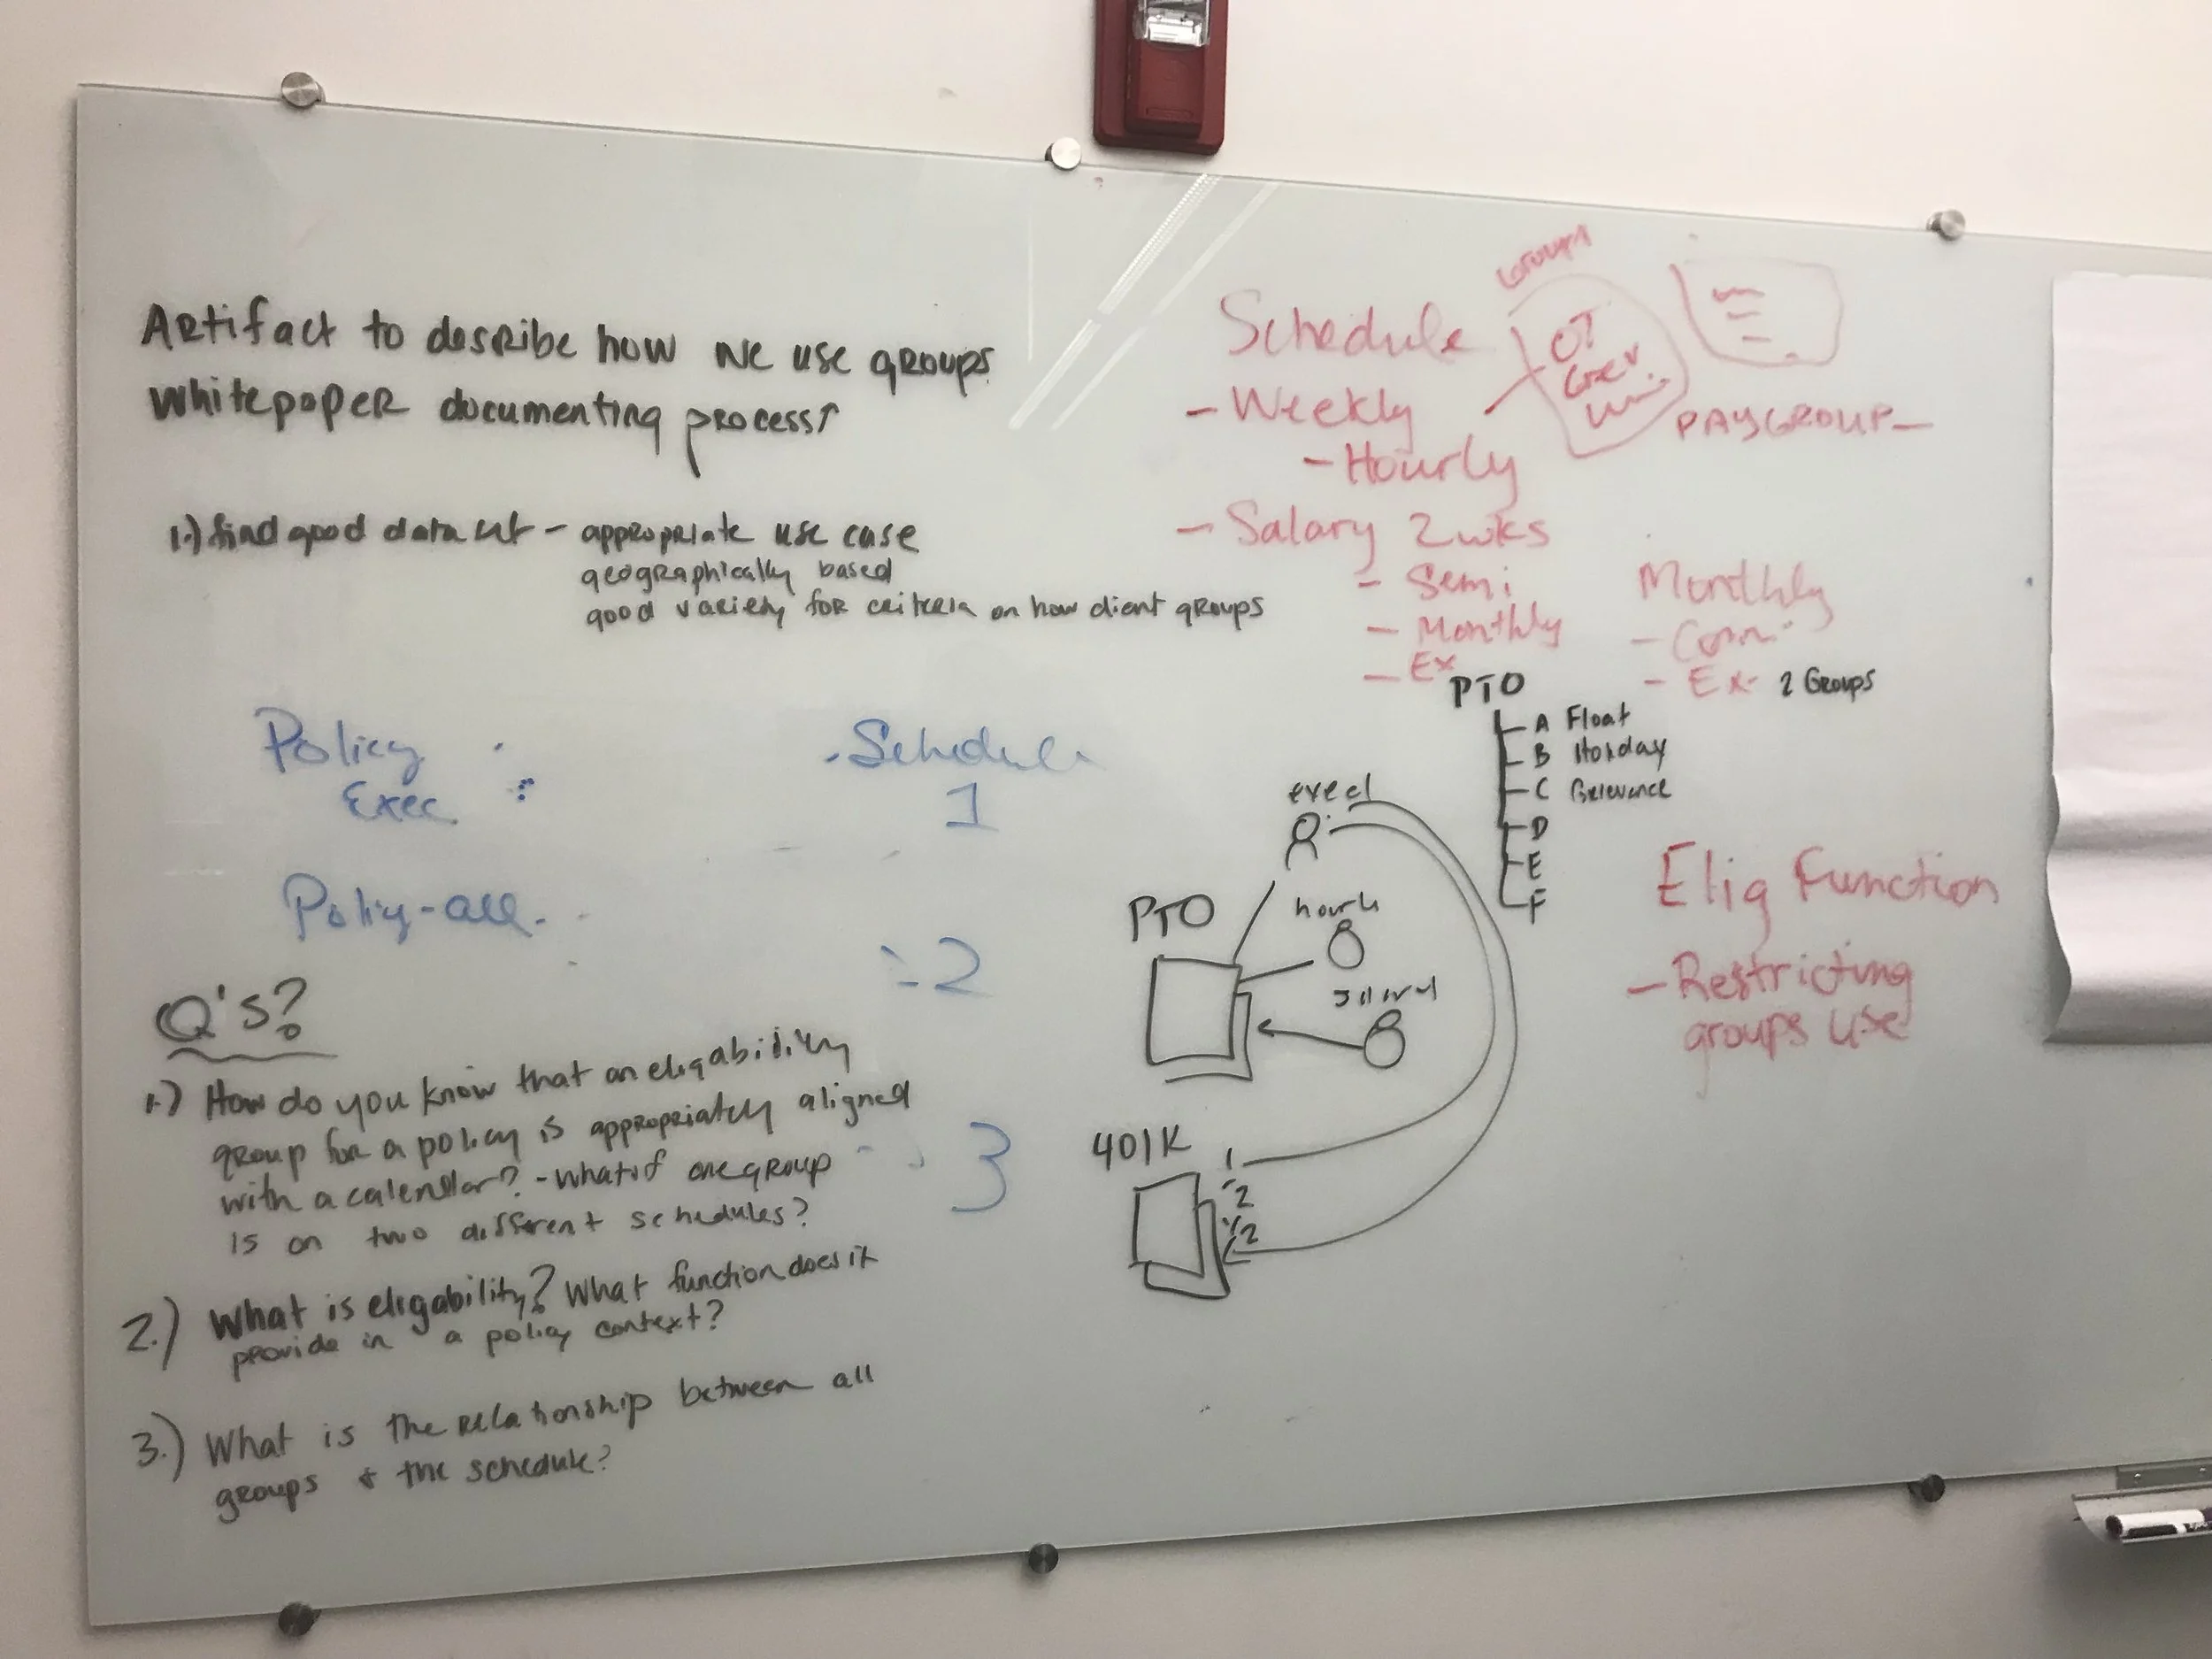 Artifact to describe how we use groups
Whitepaper documenting process↑
1.) find good data set - appropriate use case
geographically based
good variety for criteria on how client groups
Policy
Exec
Policy-all
Schedule
1
2
3
Q's?
1.) How do you know that an eligability
group for a policy is appropriately aligned
with a calendar? - what if one group
is on two different schedules?
2.) What is eligability? What function does it
provide in a policy context?
3.) What is the relationship between all
groups & the schedule?
Schedule
- Weekly
- Hourly
- Salary 2wks
- Semi
- Monthly
- Ex
Groups
OT
PAYGROUP
Monthly
- Comm
- Ex 2 Groups
PTO
A Float
B Holiday
C
D
E
F
Elig Function
- Restricting
groups use
exec
PTO
401K
1
2